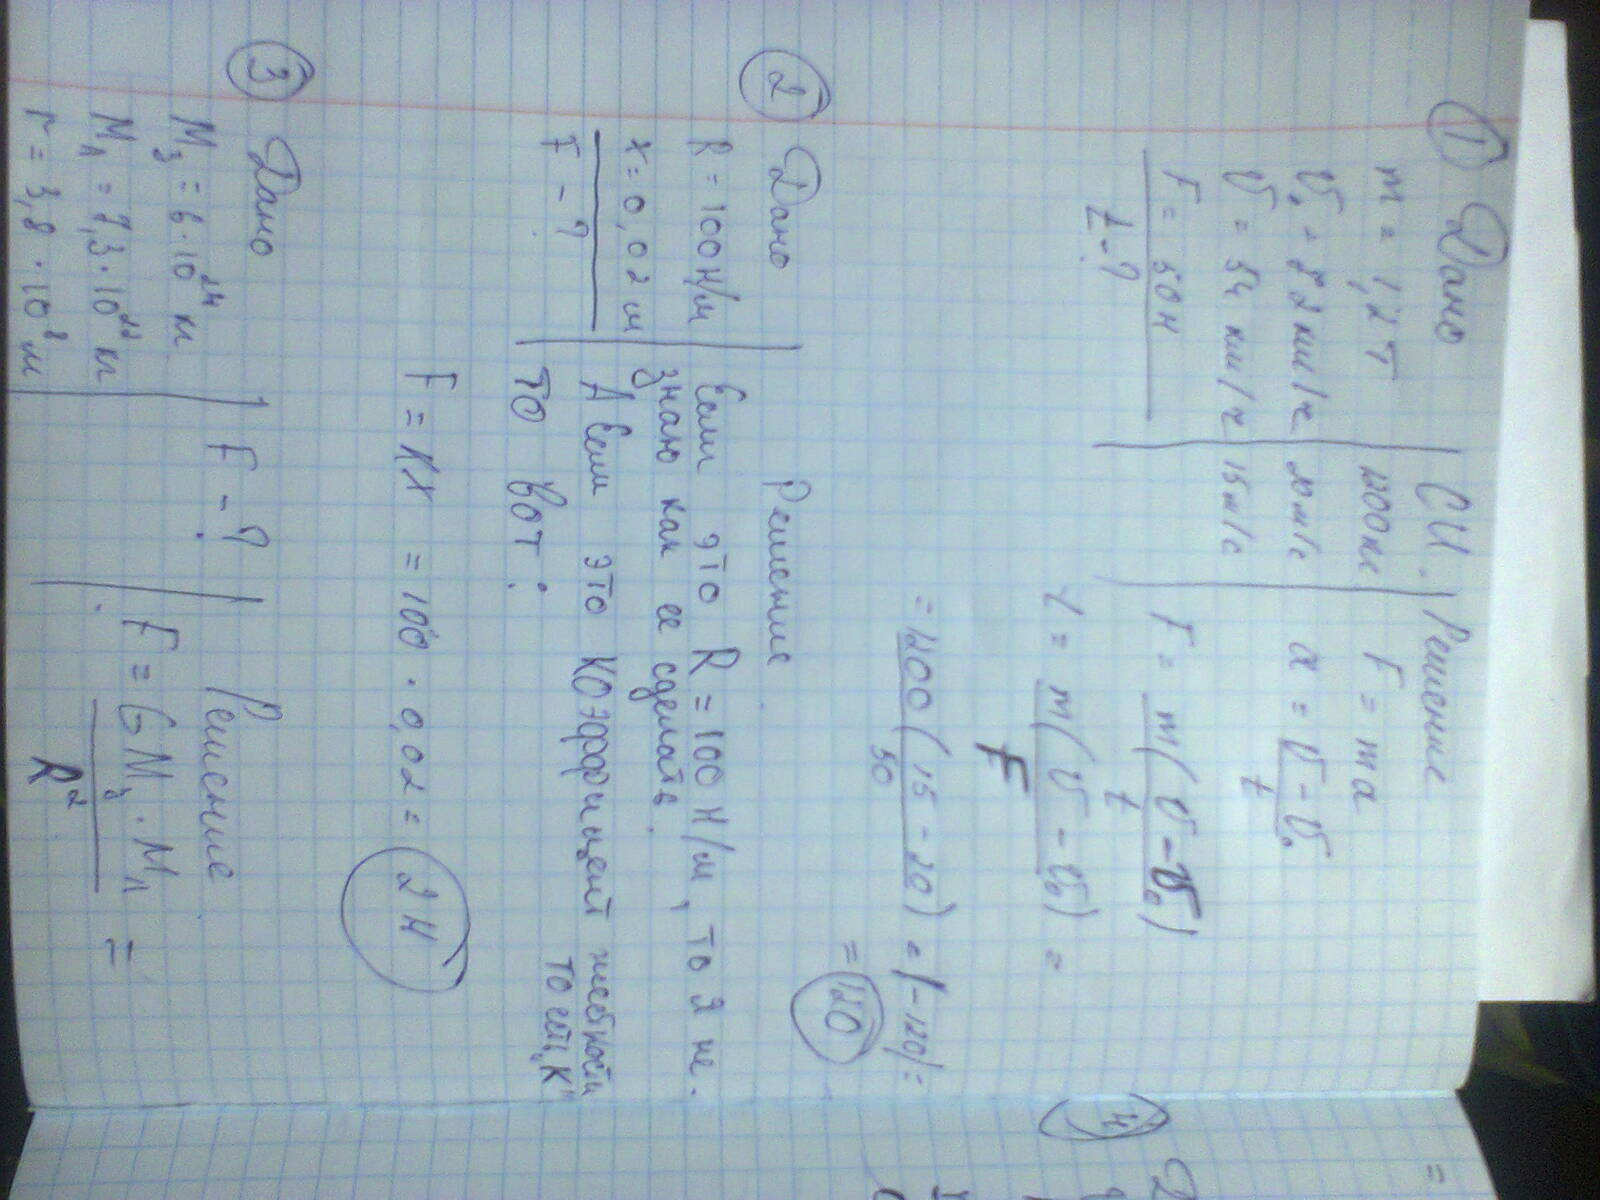 ① Дано
m = 1,2 т
V₀ = 72 км/ч
V = 54 км/ч
F = 50 н
t - ?
СИ
1200 кг
20 м/с
15 м/с
Решение
F = ma
a = V - V₀ / t
F = m(V - V₀) / t
t = m(V - V₀) / F =
= 1200(15 - 20) / 50 = |-120| =
= 120
② Дано
R = 100 Н/м
x = 0,02 м
F - ?
Решение
Если это R = 100 Н/м, то я не
знаю как ее сделать.
А если это коэффициент жесткости
то есть "К"
то вот:
F = kx = 100 · 0,02 = 2 Н
③ Дано
Mз = 6·10²⁴ кг
Mл = 7,3·10²² кг
r = 3,8·10⁸ м
F - ?
Решение
F = G Mз · Mл / R² =